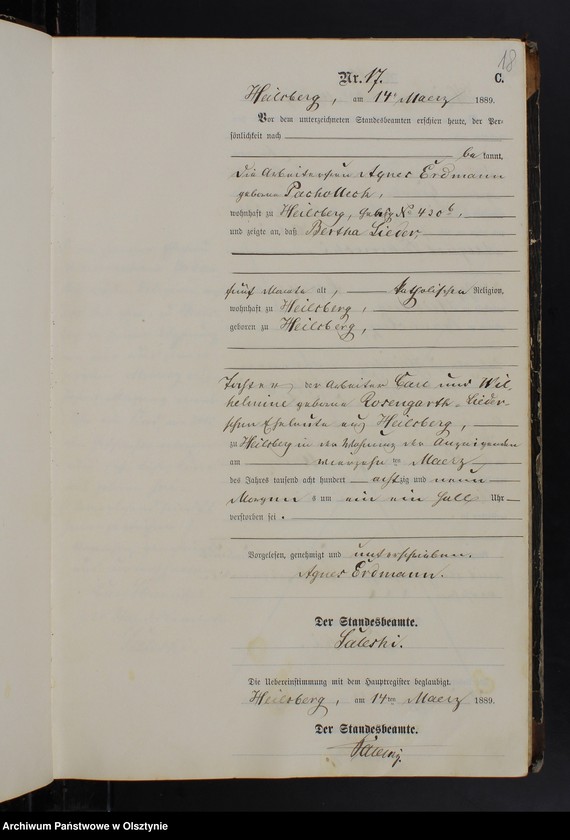 18
Nr. 17. C.
Heilsberg, am 14t Maerz 1889.
Vor dem unterzeichneten Standesbeamten erschien heute, der Per-
sönlichkeit nach
be kannt,
die Arbeiterfrau Agnes Erdmann
geborene Pachollech,
wohnhaft zu Heilsberg, No 420b,
und zeigte an, daß Bertha Lieder,
fünf Monate alt, katholischen Religion,
wohnhaft zu Heilsberg,
geboren zu Heilsberg,
Tochter der Arbeiter Carl und Wil
helmine geborene Rosengarth-Lieder-
schen Eheleute aus Heilsberg,
zu Heilsberg in der Wohnung der Anzeigenden
am vierzehnten Maerz
des Jahres tausend acht hundert achtzig und neun
Morgens um ein ein halb Uhr
verstorben sei.
Vorgelesen, genehmigt und unterschrieben.
Agnes Erdmann.
Der Standesbeamte.
Die Uebereinstimmung mit dem Hauptregister beglaubigt.
Heilsberg, am 14ten Maerz 1889.
Der Standesbeamte.
Archiwum Państwowe w Olsztynie